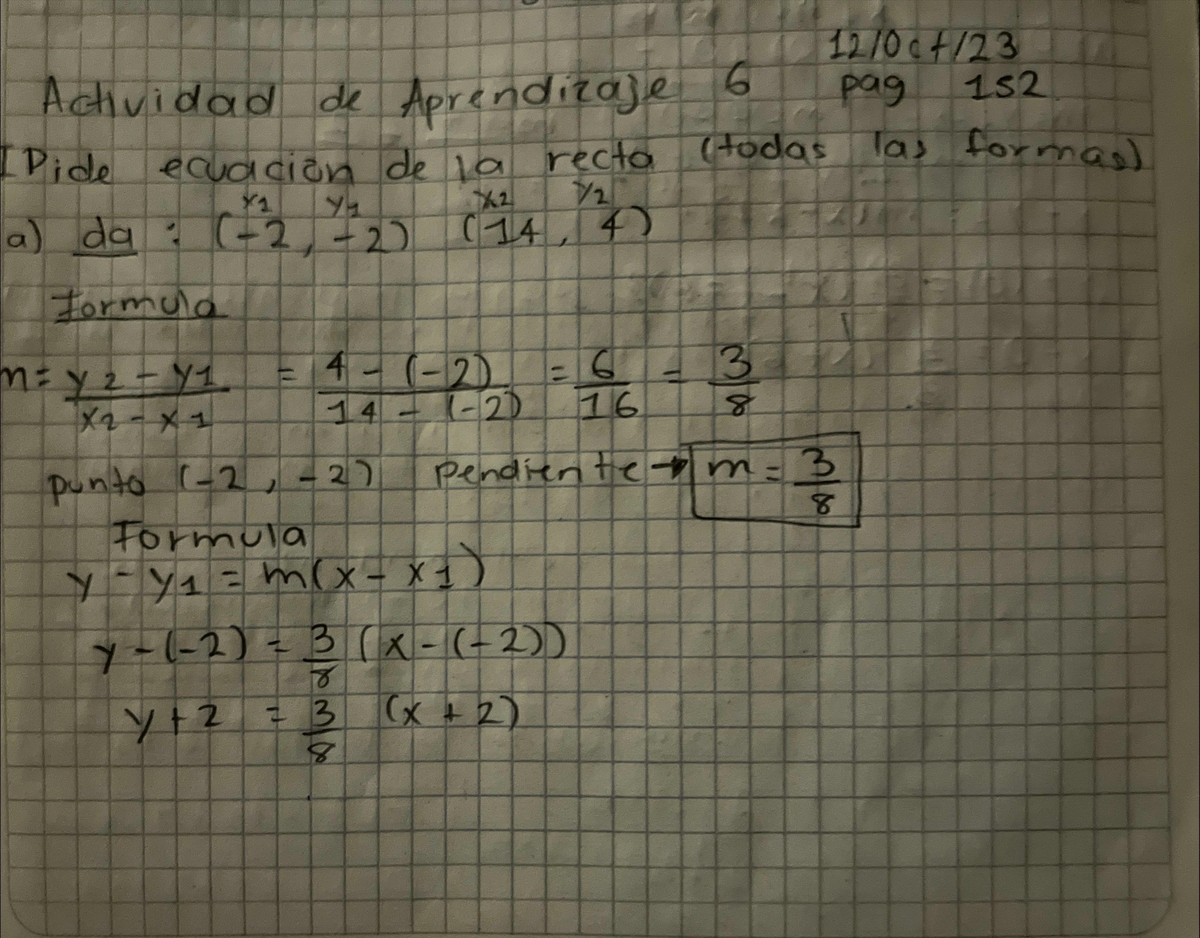 12/Oct/23
Actividad de Aprendizaje 6 pag 152
I Pide ecuación de la recta (todas las formas)
x1 y1 x2 y2
a) da : (-2, -2) (14, 4)
Formula
m = y2 - y1 / x2 - x1 = 4 - (-2) / 14 - (-2) = 6/16 = 3/8
punto (-2, -2) pendiente → m = 3/8
Formula
y - y1 = m(x - x1)
y - (-2) = 3/8 (x - (-2))
y + 2 = 3/8 (x + 2)